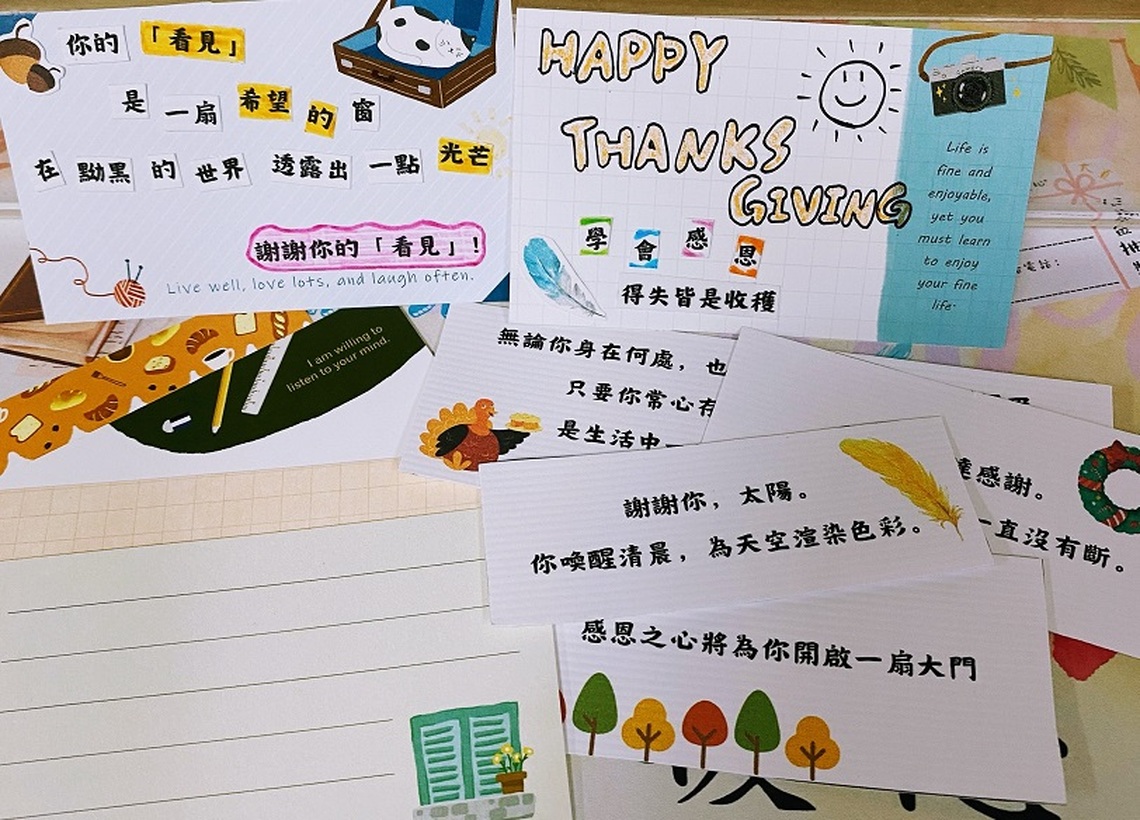 你的「看見」
是一扇希望的窗
在黝黑的世界透露出一點光芒
謝謝你的「看見」!
Live well, love lots, and laugh often.
HAPPY
THANKS
GIVING
學會感恩
得失皆是收穫
Life is
fine and
enjoyable,
yet you
must learn
to enjoy
your fine
life.
I am willing to
listen to your mind.
無論你身在何處，也
只要你常心存
是生活中
達感謝。
一直沒有斷。
謝謝你，太陽。
你喚醒清晨，為天空渲染色彩。
感恩之心將為你開啟一扇大門